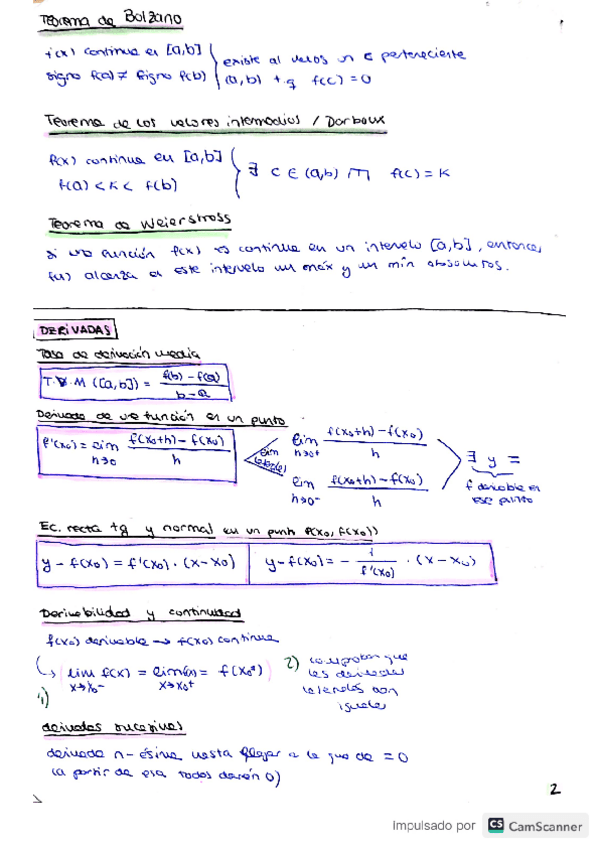 Teorema de Bolzano
f(x) continua en [a,b]
signo f(a) ≠ signo f(b)
existe al menos un c perteneciente
(a,b) t.q f(c) = 0
Teorema de los valores intermedios / Darboux
f(x) continua en [a,b]
f(a) < K < f(b)
∃ c ∈ (a,b) / f(c) = K
Teorema de Weierstrass
si una función f(x) es continua en un intervalo [a,b], entonces
f(x) alcanza en este intervalo un máx y un mín absolutos.
DERIVADAS
Tasa de derivación media
T.V.M ([a,b]) = f(b) - f(a) / b - a
Derivada de una función en un punto
f'(x0) = lim h→0 f(x0+h) - f(x0) / h
lim
laterales
lim h→0+ f(x0+h) - f(x0) / h
lim h→0- f(x0+h) - f(x0) / h
∃ y =
f derivable en
ese punto
Ec. recta tg y normal en un punto P(x0, f(x0))
y - f(x0) = f'(x0) · (x - x0)
y - f(x0) = - 1 / f'(x0) · (x - x0)
Derivabilidad y continuidad
f(x0) derivable → f(x0) continua
1) lim x→x0- f(x) = lim x→x0+ f(x) = f(x0)
2) comprobar que
las derivadas
laterales son
iguales
derivadas sucesivas
derivada n-ésima hasta llegar a la que de = 0
(a partir de esa todas darán 0)
2
Impulsado por CS CamScanner